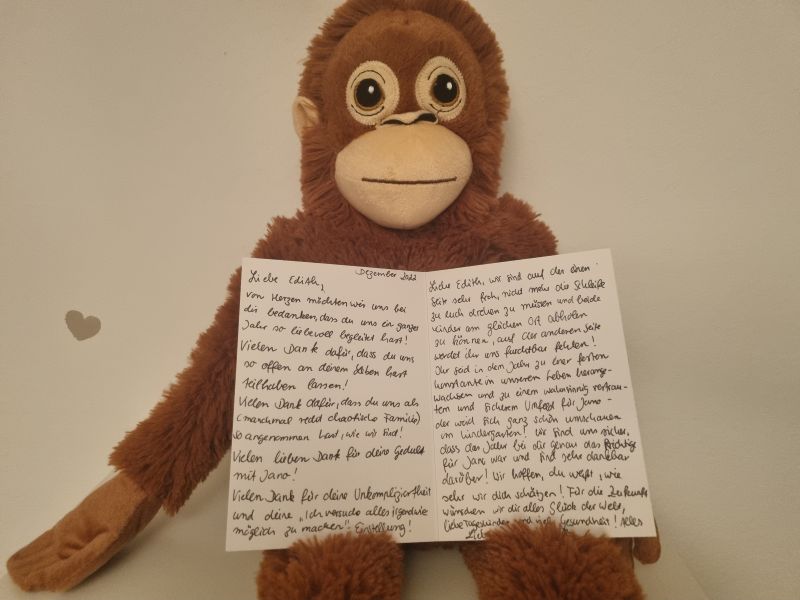 Dezember 2022
Liebe Edith,
von Herzen möchten wir uns bei
dir bedanken, dass du uns ein ganzes
Jahr so liebevoll begleitet hast!
Vielen Dank dafür, dass du uns
so offen an deinem Leben hast
teilhaben lassen!
Vielen Dank dafür, dass du uns als
(manchmal recht chaotische Familie)
so angenommen hast, wie wir sind!
Vielen lieben Dank für deine Geduld
mit Jano!
Vielen Dank für deine Unkompliziertheit
und deine „Ich versuche alles irgendwie
möglich zu machen"- Einstellung!
Liebe Edith, wir sind auf der einen
Seite sehr froh, nicht mehr die Schleife
zu euch drehen zu müssen und beide
Kinder am gleichen Ort abholen
zu können, auf der anderen Seite
werdet ihr uns furchtbar fehlen!
Ihr seid in dem Jahr zu einer festen
Konstante in unserem Leben herange-
wachsen und zu einem wahnsinnig vertrau-
ten und sicheren Umfeld für Jano -
der wird sich ganz schön umschauen
im Kindergarten! Wir sind uns sicher,
dass das Jahr bei dir genau das Richtige
für Jano war und sind sehr dankbar
darüber! Wir hoffen, du weißt, wie
sehr wir dich schätzen! Für die Zukunft
wünschen wir dir alles Glück der Welt,
liebe Tageskinder und viel Gesundheit! Alles